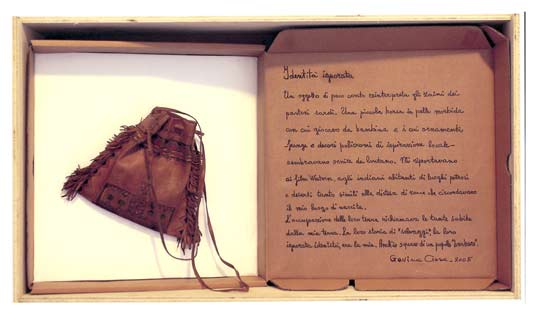 Identità ignorata
Un oggetto di poco conto reinterpreta gli zaini dei
pastori sardi. Una piccola borsa in pelle morbida
con cui giocavo da bambina e i cui ornamenti,
frange e decori policromi di ispirazione locale
sembravano venire da lontano. Mi riportavano
ai film Western, agli indiani abitanti di luoghi pietrosi
e deserti tanto simili alla distesa di rocce che circondavano
il mio luogo di nascita.
L'occupazione delle loro terre richiamava le tante subite
dalla mia terra. La loro storia di "selvaggi", la loro
ignorata identità, era la mia. Anch'io di un popolo "barbaro".
2005